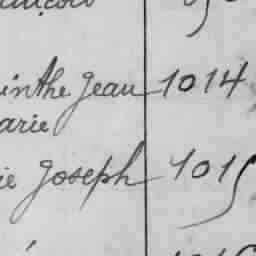 inthe Jean 1014
arie
ie Joseph 1015